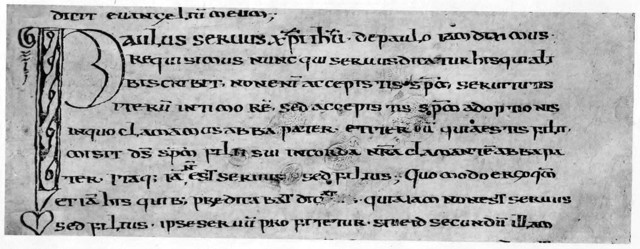 dicit euangeliū meum;
Paulus seruus xp̄i ih̄u. de paulo iam diximus.
Requirimus nunc qur seruus dicatur his qui ali
bi scribit. non enī accepistis sp̄m seruitutis
iterū in timorē. sed accepistis sp̄m adoptionis
in quo clamamus abba pater. et iterū quia estis filii.
misit d̄s sp̄m filii sui in corda nr̄a clamantē abba pa
ter. itaq; iā ñ est seruus sed filius; Quomodo ergo
et iā his quib; predicabat quia iam non est seruus
sed filius. ipse seruū profitetur. secundū illam